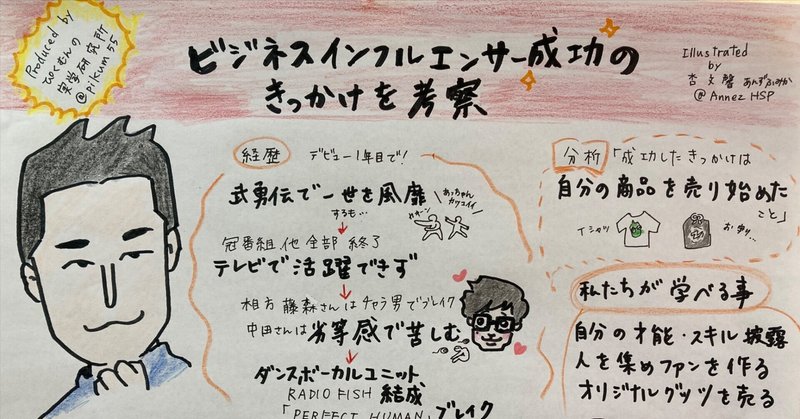 Produced by
ぴくもんの
実学研究所
@pikum55
ビジネスインフルエンサー成功の
きっかけを考察
Illustrated
by
杏文馨 あんずふみか
@Annez HSP
経歴 デビュー1年目で!
武勇伝で一世を風靡
するも…
あっちゃん
カッコイイ
カキーン
冠番組他全部終了
テレビで活躍できず
相方藤森さんはチャラ男でブレイク
中田さんは劣等感で苦しむ
ダンスボーカルユニット
RADIO FISH 結成
「PERFECT HUMAN」ブレイク
分析 「成功したきっかけは
自分の商品を売り始めた
こと」
Tシャツ
お守り…
私たちが学べる事
自分の才能・スキル披露
人を集めファンを作る
オリジナルグッツを売る